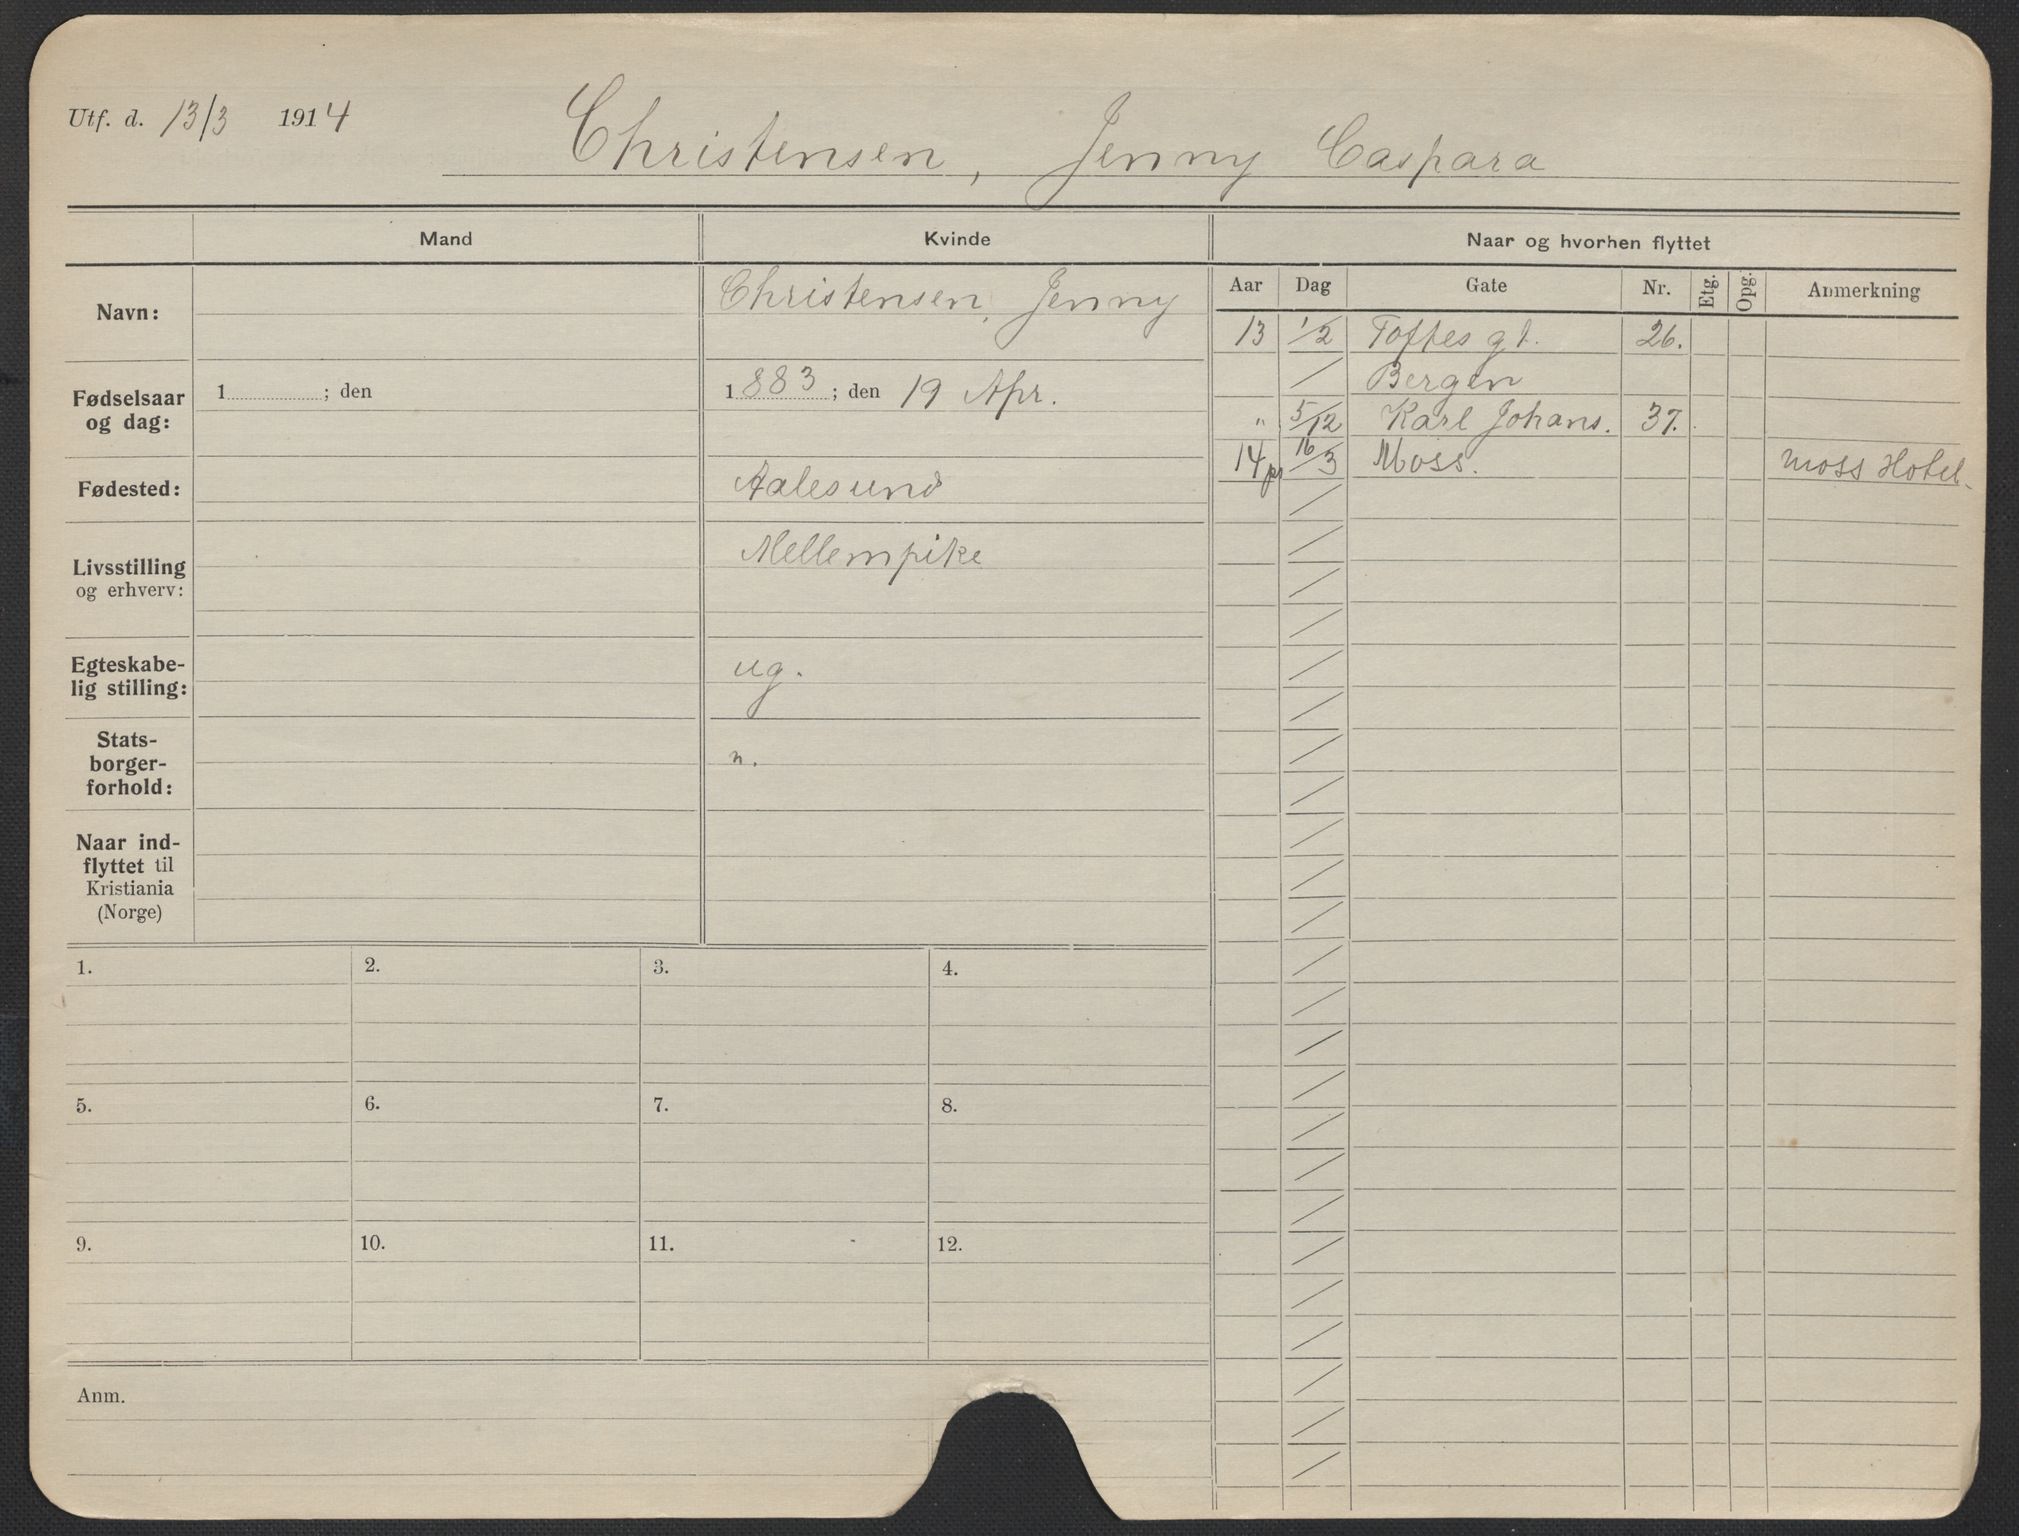 Utf. d. 13/3 1914 Christensen, Jenny Caspara
Mand Kvinde Naar og hvorhen flyttet
Navn: Christensen, Jenny
Fødselsaar og dag: 1 ; den 1883 ; den 19 Apr.
Fødested: Aalesund
Livsstilling og erhverv: Mellempike
Egteskabe-
lig stilling: ug.
Stats-
borger-
forhold: n.
Naar ind-
flyttet til
Kristiania
(Norge)
Aar Dag Gate Nr. Etg. Opg. Anmerkning
13 1/2 Toftes gt. 26.
Bergen
" 5/12 Karl Johans. 37.
14 16/3 Moss. Moss Hotel.
1. 2. 3. 4.
5. 6. 7. 8.
9. 10. 11. 12.
Anm.